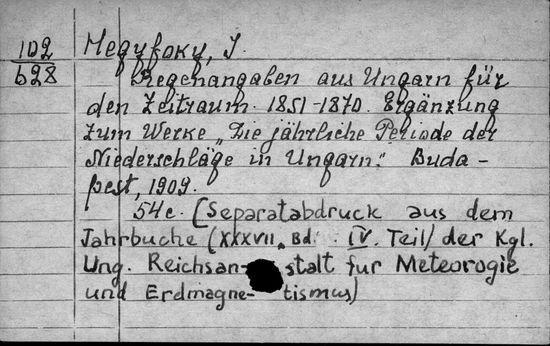 102
628
Megyfoky, J.
Regenangaben aus Ungarn für
den Zeitraum 1851-1870. Ergänzung
zum Werke „Die jährliche Periode der
Niederschläge in Ungarn". Buda-
pest, 1909.
54 c. (Separatabdruck aus dem
Jahrbuche (XXXVII, Bd. IV. Teil) der Kgl.
Ung. Reichsan- stalt fur Meteorogie
und Erdmagne- tismus)